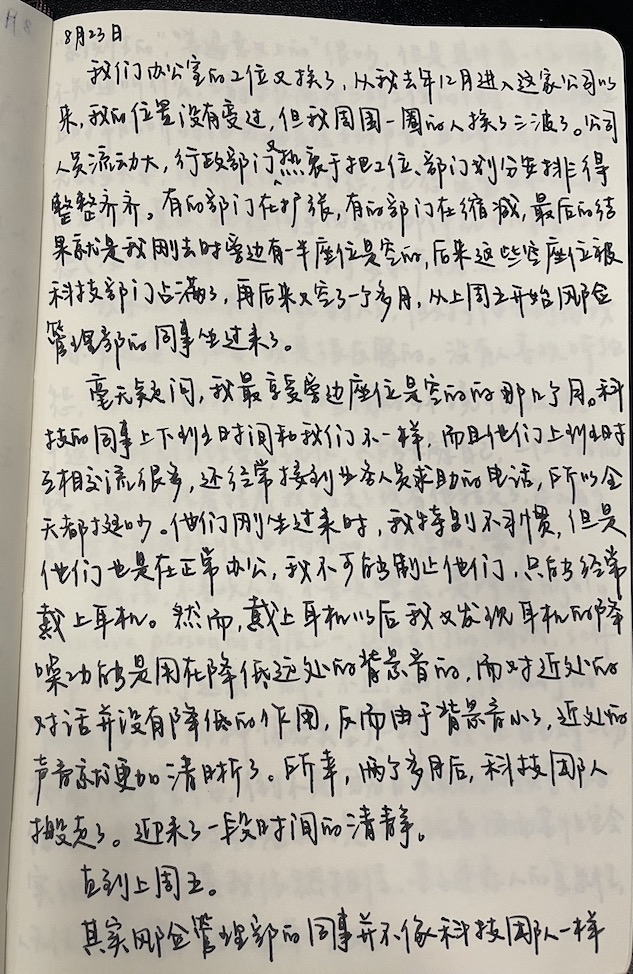 8月23日
我们办公室的工位又换了，从我去年12月进入这家公司以
来，我的位置没有变过，但我周围一圈的人换了三波了。公司
人员流动大，行政部门又热衷于把工位、部门划分安排得
整整齐齐。有的部门在扩张，有的部门在缩减，最后的结
果就是我刚去时旁边有一半座位是空的，后来这些空座位被
科技部门占满了，再后来又空了一个多月，从上周五开始风险
管理部的同事坐过来了。
毫无疑问，我最享受旁边座位是空的的那几个月。科
技的同事上下班时间和我们不一样，而且他们上班时
互相交流很多，还经常接到业务人员求助的电话，所以全
天都挺吵。他们刚坐过来时，我特别不习惯，但是
他们也是在正常办公，我不可能制止他们，只能经常
戴上耳机。然而，戴上耳机以后我又发现耳机的降
噪功能是用在降低远处的背景音的，而对近处的
对话并没有降低的作用，反而由于背景音小了，近处的
声音就更加清晰了。所幸，两个多月后，科技团队
搬走了。迎来了一段时间的清静。
直到上周五。
其实风险管理部的同事并不像科技团队一样